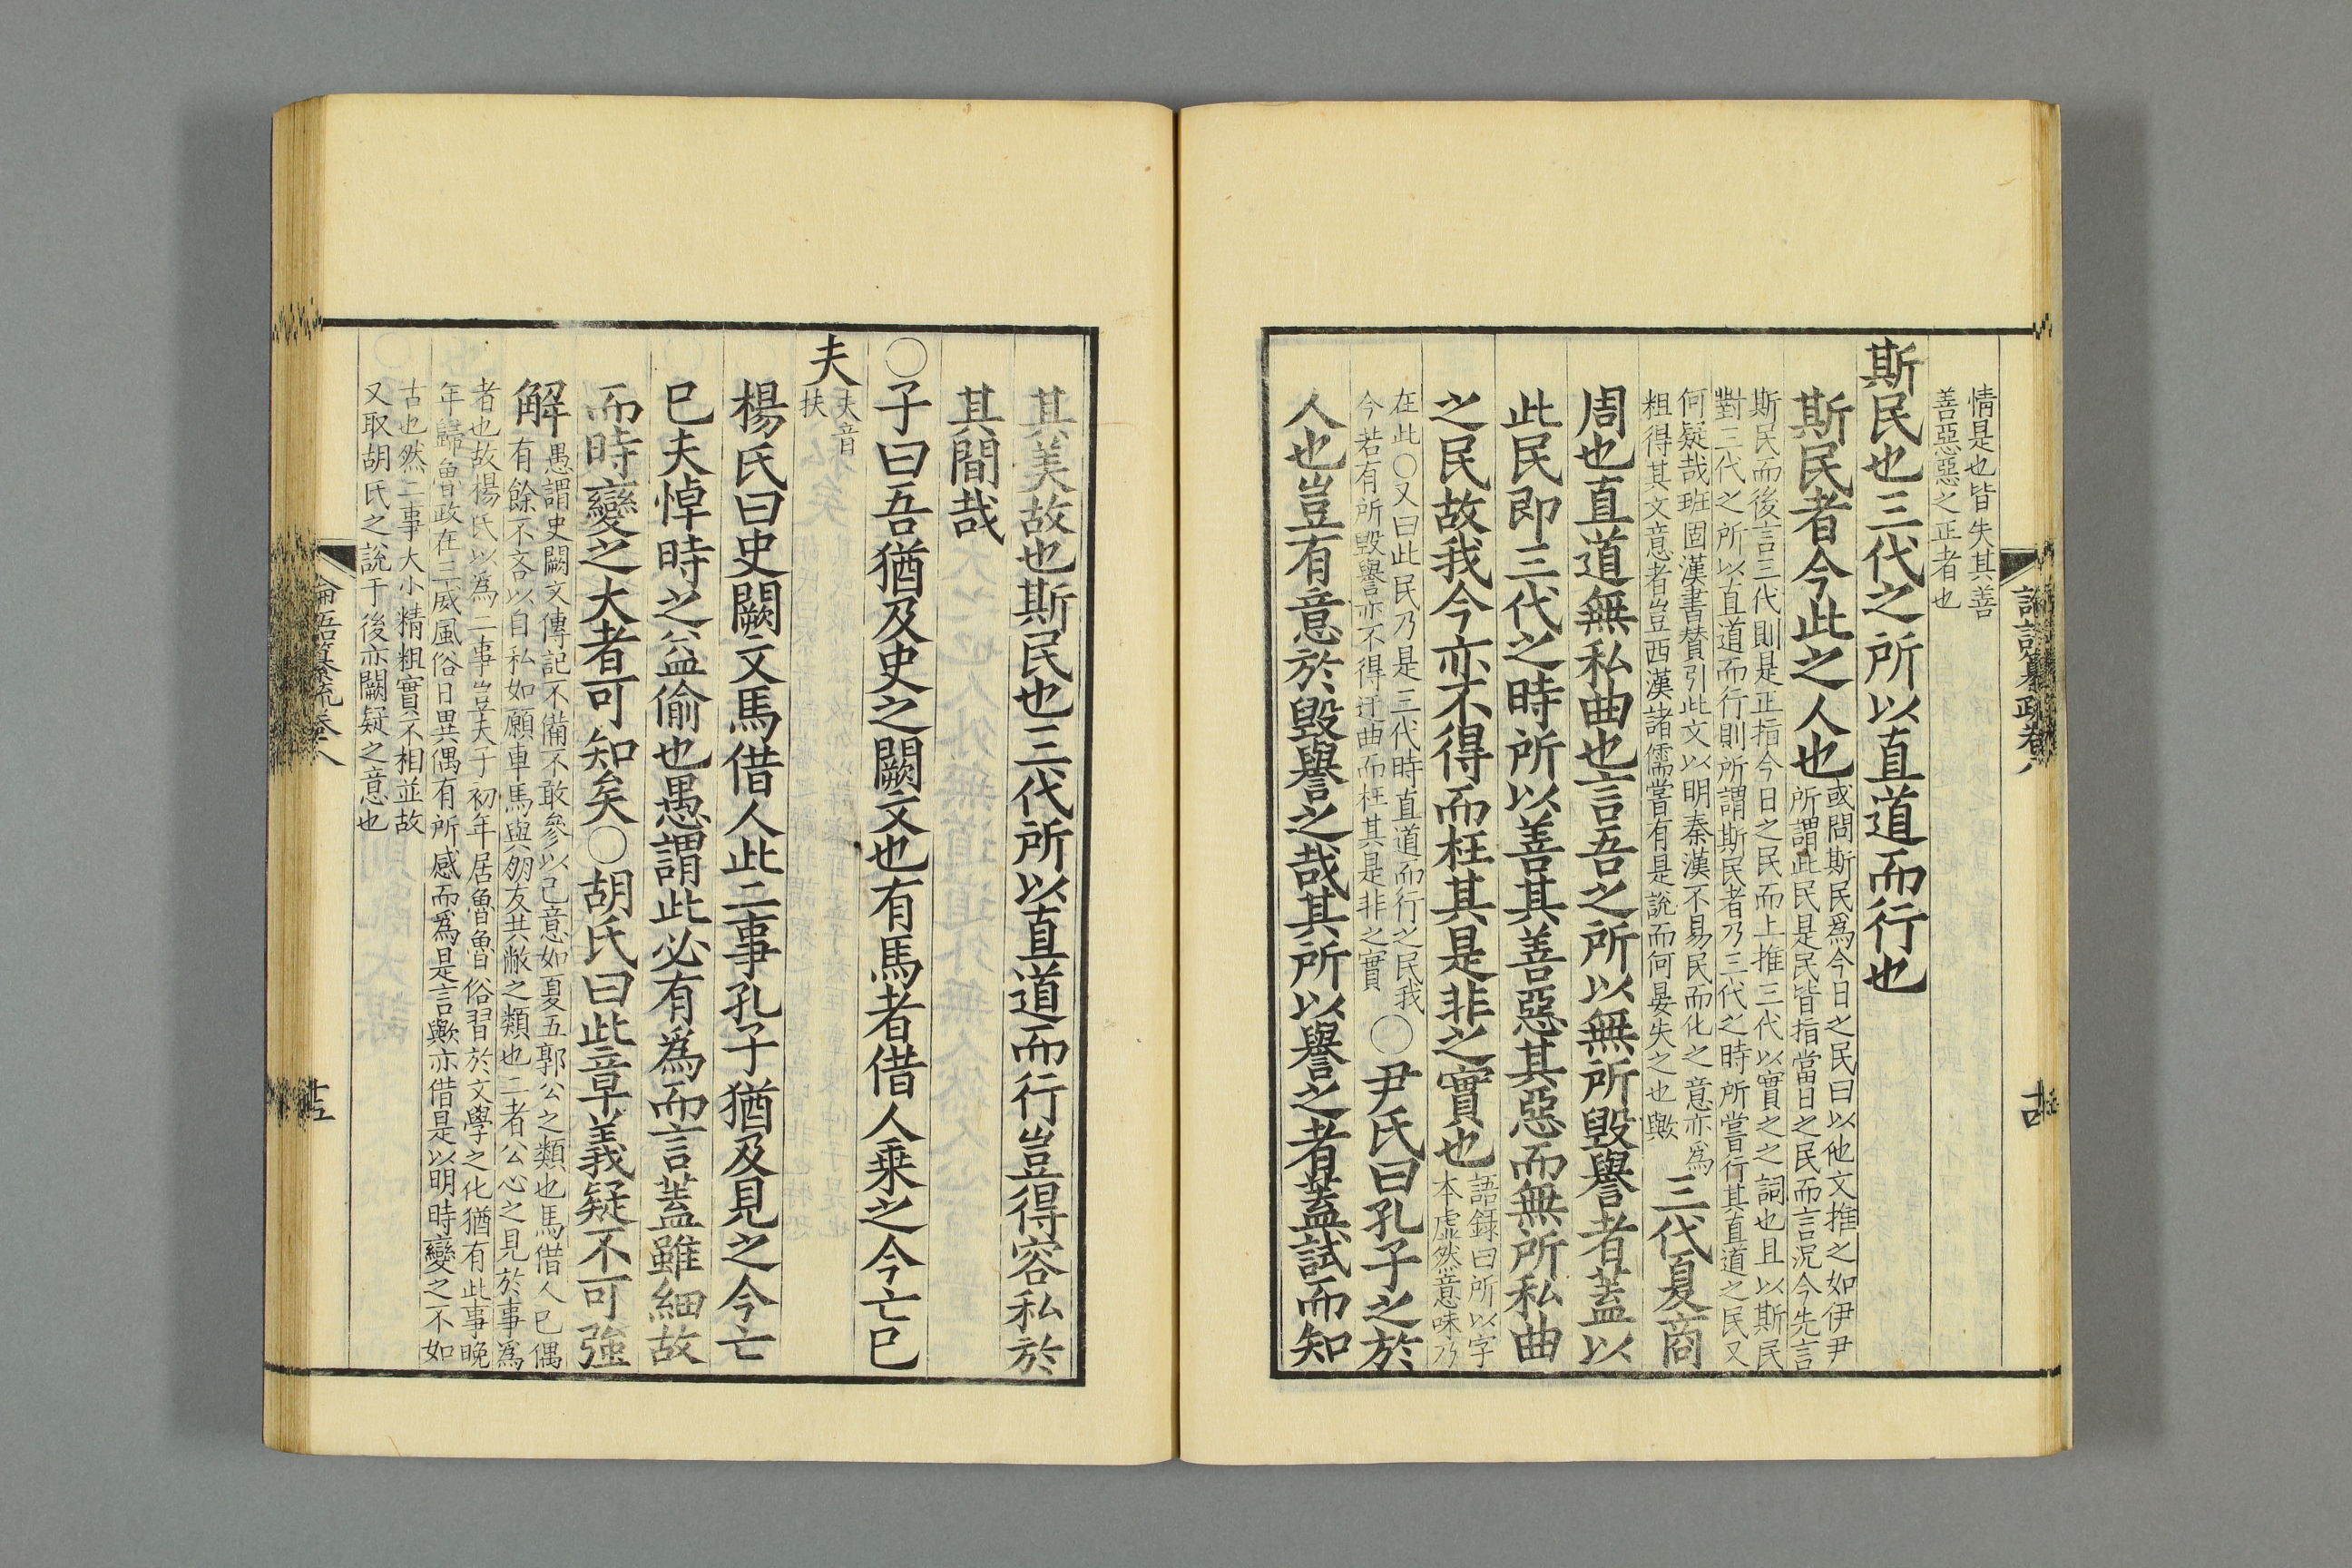 情是也皆失其善
善惡惡之正者也
斯民也三代之所以直道而行也
斯民者今此之人也
或問斯民爲今日之民曰以他文推之如伊尹
所謂此民是民皆指當日之民而言況今先言
斯民而後言三代則是正指今日之民而上推三代以實之之詞也且以斯民
對三代之所以直道而行則所謂斯民者乃三代之時所嘗行其直道之民又
何疑哉班固漢書贊引此文以明秦漢不易民而化之意亦爲
粗得其文意者豈西漢諸儒嘗有是說而何晏失之也歟
三代夏商
周也直道無私曲也言吾之所以無所毀譽者蓋以
此民即三代之時所以善其善惡其惡而無所私曲
之民故我今亦不得而枉其是非之實也
語録曰所以字
本虛然意味乃
在此○又曰此民乃是三代時直道而行之民我
今若有所毀譽亦不得迂曲而枉其是非之實
○尹氏曰孔子之於
人也豈有意於毀譽之哉其所以譽之者蓋試而知
其美故也斯民也三代所以直道而行豈得容私於
其間哉
○子曰吾猶及史之闕文也有馬者借人乗之今亡已
夫
夫音
扶
楊氏曰史闕文馬借人此二事孔子猶及見之今亡
已夫悼時之益偷也愚謂此必有爲而言蓋雖細故
而時變之大者可知矣○胡氏曰此章義疑不可強
解
愚謂史闕文傳記不備不敢參以己意如夏五郭公之類也馬借人已偶
有餘不吝以自私如願車馬與朋友共敝之類也二者公心之見於事爲
者也故楊氏以為二事豈夫子初年居魯魯俗習於文學之化猶有此事晚
年歸魯政在三威風俗日異偶有所感而爲是言歟亦借是以明時變之不如
古也然二事大小精粗實不相並故
又取胡氏之說于後亦闕疑之意也
論語纂疏卷八